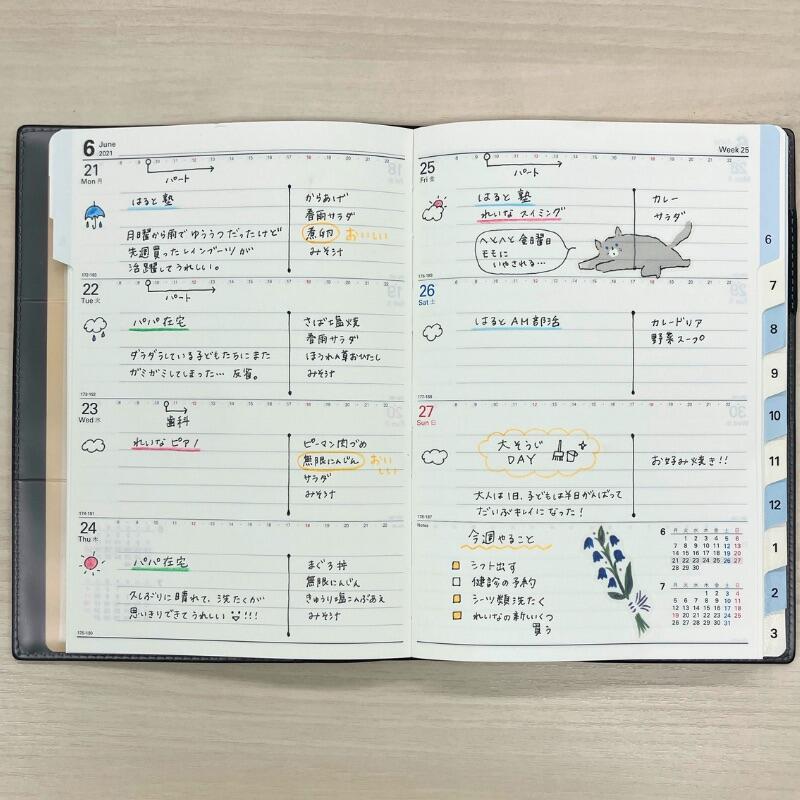 6 June
2021
21
Mon 月
パート
はると 塾
月曜から雨でゆううつだったけど
先週買ったレインブーツが
活躍してうれしい。
からあげ
春雨サラダ
煮卵 おいしい
みそ汁
172-193
22
Tue 火
パート
パパ在宅
ダラダラしている子どもたちにまた
ガミガミしてしまった… 反省。
さばせ塩焼
春雨サラダ
ほうれん草おひたし
みそ汁
23
Wed 水
歯科
れいな ピアノ
ピーマン肉づめ
無限にんじん おいしい
サラダ
みそ汁
174-191
24
Thu 木
パパ在宅
久しぶりに晴れて、洗たくが
思いきりできてうれしい!!!
まぐろ丼
無限にんじん
きゅうり塩こんぶあえ
みそ汁
175-190
Week 25
25
Fri 金
パート
はると 塾
れいな スイミング
へとへと金曜日
モモに
いやされる…
カレー
サラダ
26
Sat 土
はると AM部活
カレードリア
野菜スープ
27
Sun 日
大そうじ
DAY
大人は1日、子どもは半日がんばって
だいぶキレイになった!
お好み焼き!!
Notes
今週やること
シフト出す
健診の予約
シーツ類洗たく
れいなの新しいくつ
買う
6 月 火 水 木 金 土 日
1 2 3 4 5 6
7 8 9 10 11 12 13
14 15 16 17 18 19 20
21 22 23 24 25 26 27
28 29 30
7 月 火 水 木 金 土 日
1 2 3 4
5 6 7 8 9 10 11
12 13 14 15 16 17 18
19 20 21 22 23 24 25
26 27 28 29 30 31
6
7
8
9
10
11
12
1
2
3